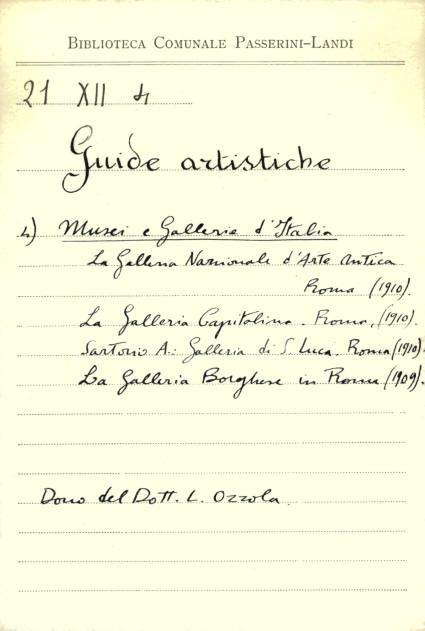 BIBLIOTECA COMUNALE PASSERINI-LANDI
21 XII 4
Guide artistiche
4) Musei e Gallerie d'Italia
La Galleria Nazionale d'Arte Antica
Roma (1910).
La Galleria Capitolina. Roma, (1910).
Sartorio A.: Galleria di S. Luca. Roma (1910).
La Galleria Borghese in Roma (1909).
Dono del Dott. L. Ozzola.